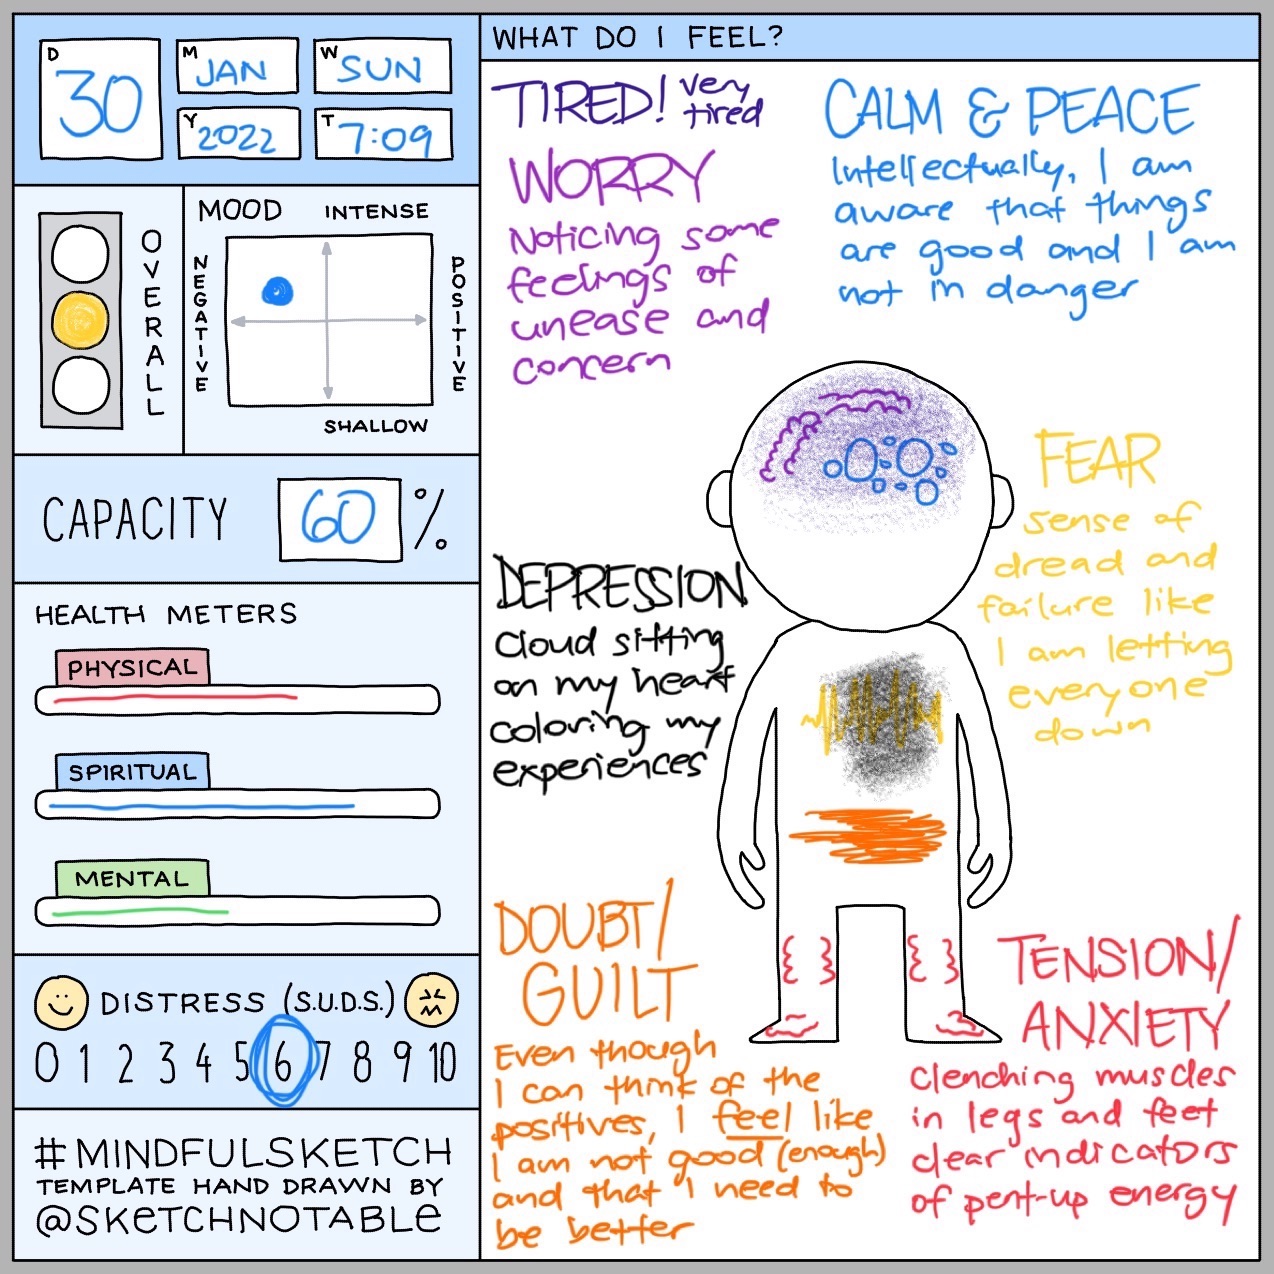 D
30
M
JAN
W
SUN
Y
2022
T
7:09
OVERALL
MOOD
INTENSE
NEGATIVE
POSITIVE
SHALLOW
CAPACITY
60
%
HEALTH METERS
PHYSICAL
SPIRITUAL
MENTAL
DISTRESS (S.U.D.S.)
0 1 2 3 4 5 6 7 8 9 10
#MINDFULSKETCH
TEMPLATE HAND DRAWN BY
@SKETCHNOTABLE
WHAT DO I FEEL?
TIRED! very
tired
WORRY
Noticing some
feelings of
unease and
concern
CALM & PEACE
Intellectually, I am
aware that things
are good and I am
not in danger
FEAR
sense of
dread and
failure like
I am letting
everyone
down
DEPRESSION
Cloud sitting
on my heart
coloring my
experiences
DOUBT/
GUILT
Even though
I can think of the
positives, I feel like
I am not good (enough)
and that I need to
be better
TENSION/
ANXIETY
Clenching muscles
in legs and feet
clear indicators
of pent-up energy